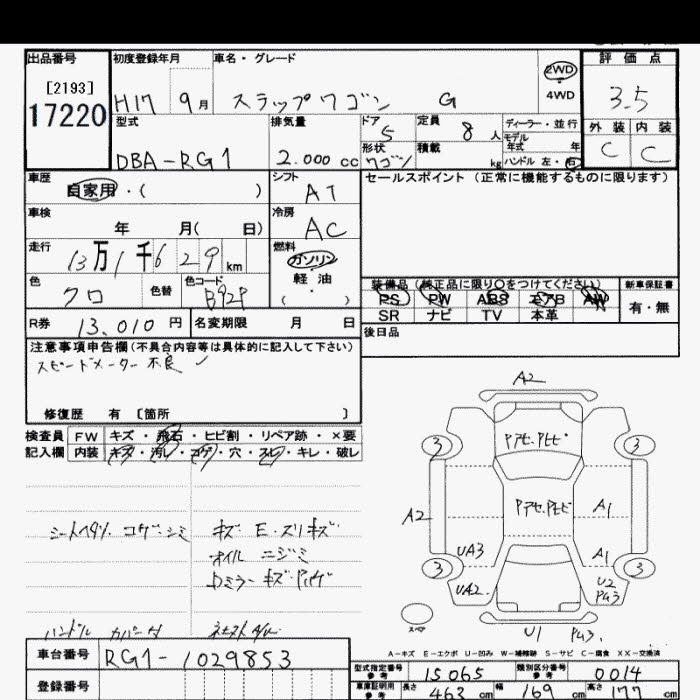 出品番号 初度登録年月 車名・グレード 2WD 評価点
[2193] H17 9月 ステップワゴン G 4WD 3.5
17220 型式 排気量 ドア 定員 ディーラー・並行 外装 内装
5 8人 モデル年式 年
DBA-RG1 2.000cc 形状 ワゴン 積載 kg ハンドル 左・右 C C
車歴 シフト セールスポイント(正常に機能するものに限ります)
自家用・( ) AT
車検 冷房
年 月( 日) AC
走行 燃料
13万1千629km ガソリン
色 色替 色コード 軽油 装備品(純正品に限り○をつけてください) 新車保証書
クロ B92P ( ・ ) PS PW ABS エアB AW 有・無
SR ナビ TV 本革
R券 13.010円 名変期限 月 日 後日品
注意事項申告欄(不具合内容等は具体的に記入して下さい)
スピードメーター不良
修復歴 有 〔箇所 〕
検査員 FW キズ・飛石・ヒビ割・リペア跡・×要
記入欄 内装 キズ・汚レ・コゲ・穴・スレ・キレ・破レ
A2
3 3
A2 A1
UA3 A1
3 3
UA2 U2
スペア U1
シートヘタリ コゲ・シミ キズ E・スリキズ
オイル ニジミ
ハンドル
A-キズ E-エクボ U-凹み W-補修跡 S-サビ C-腐食 XX-交換済
車台番号 RG1-1029853
登録番号
型式指定番号 参考 15065 類別区分番号 参考 0014
車庫証明用 参考 長さ 463cm 幅 169cm 高さ 177cm